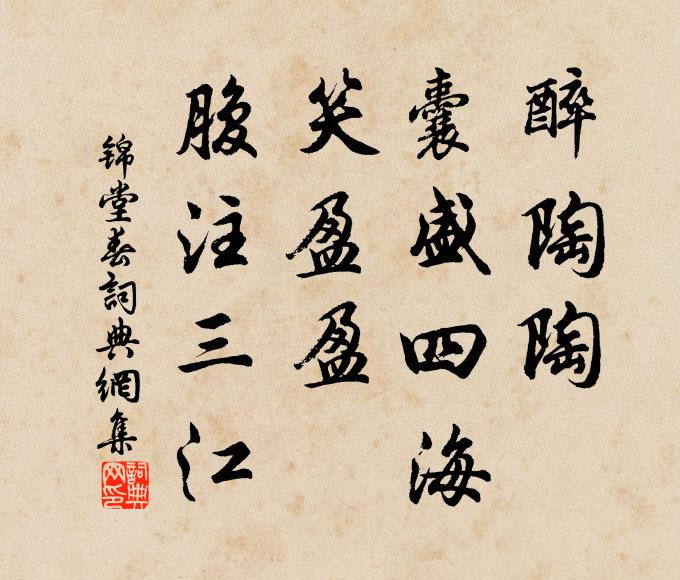 醉陶陶
囊盛四海
笑盈盈
腹注三江
锦堂春詞典網集
詞典
网印